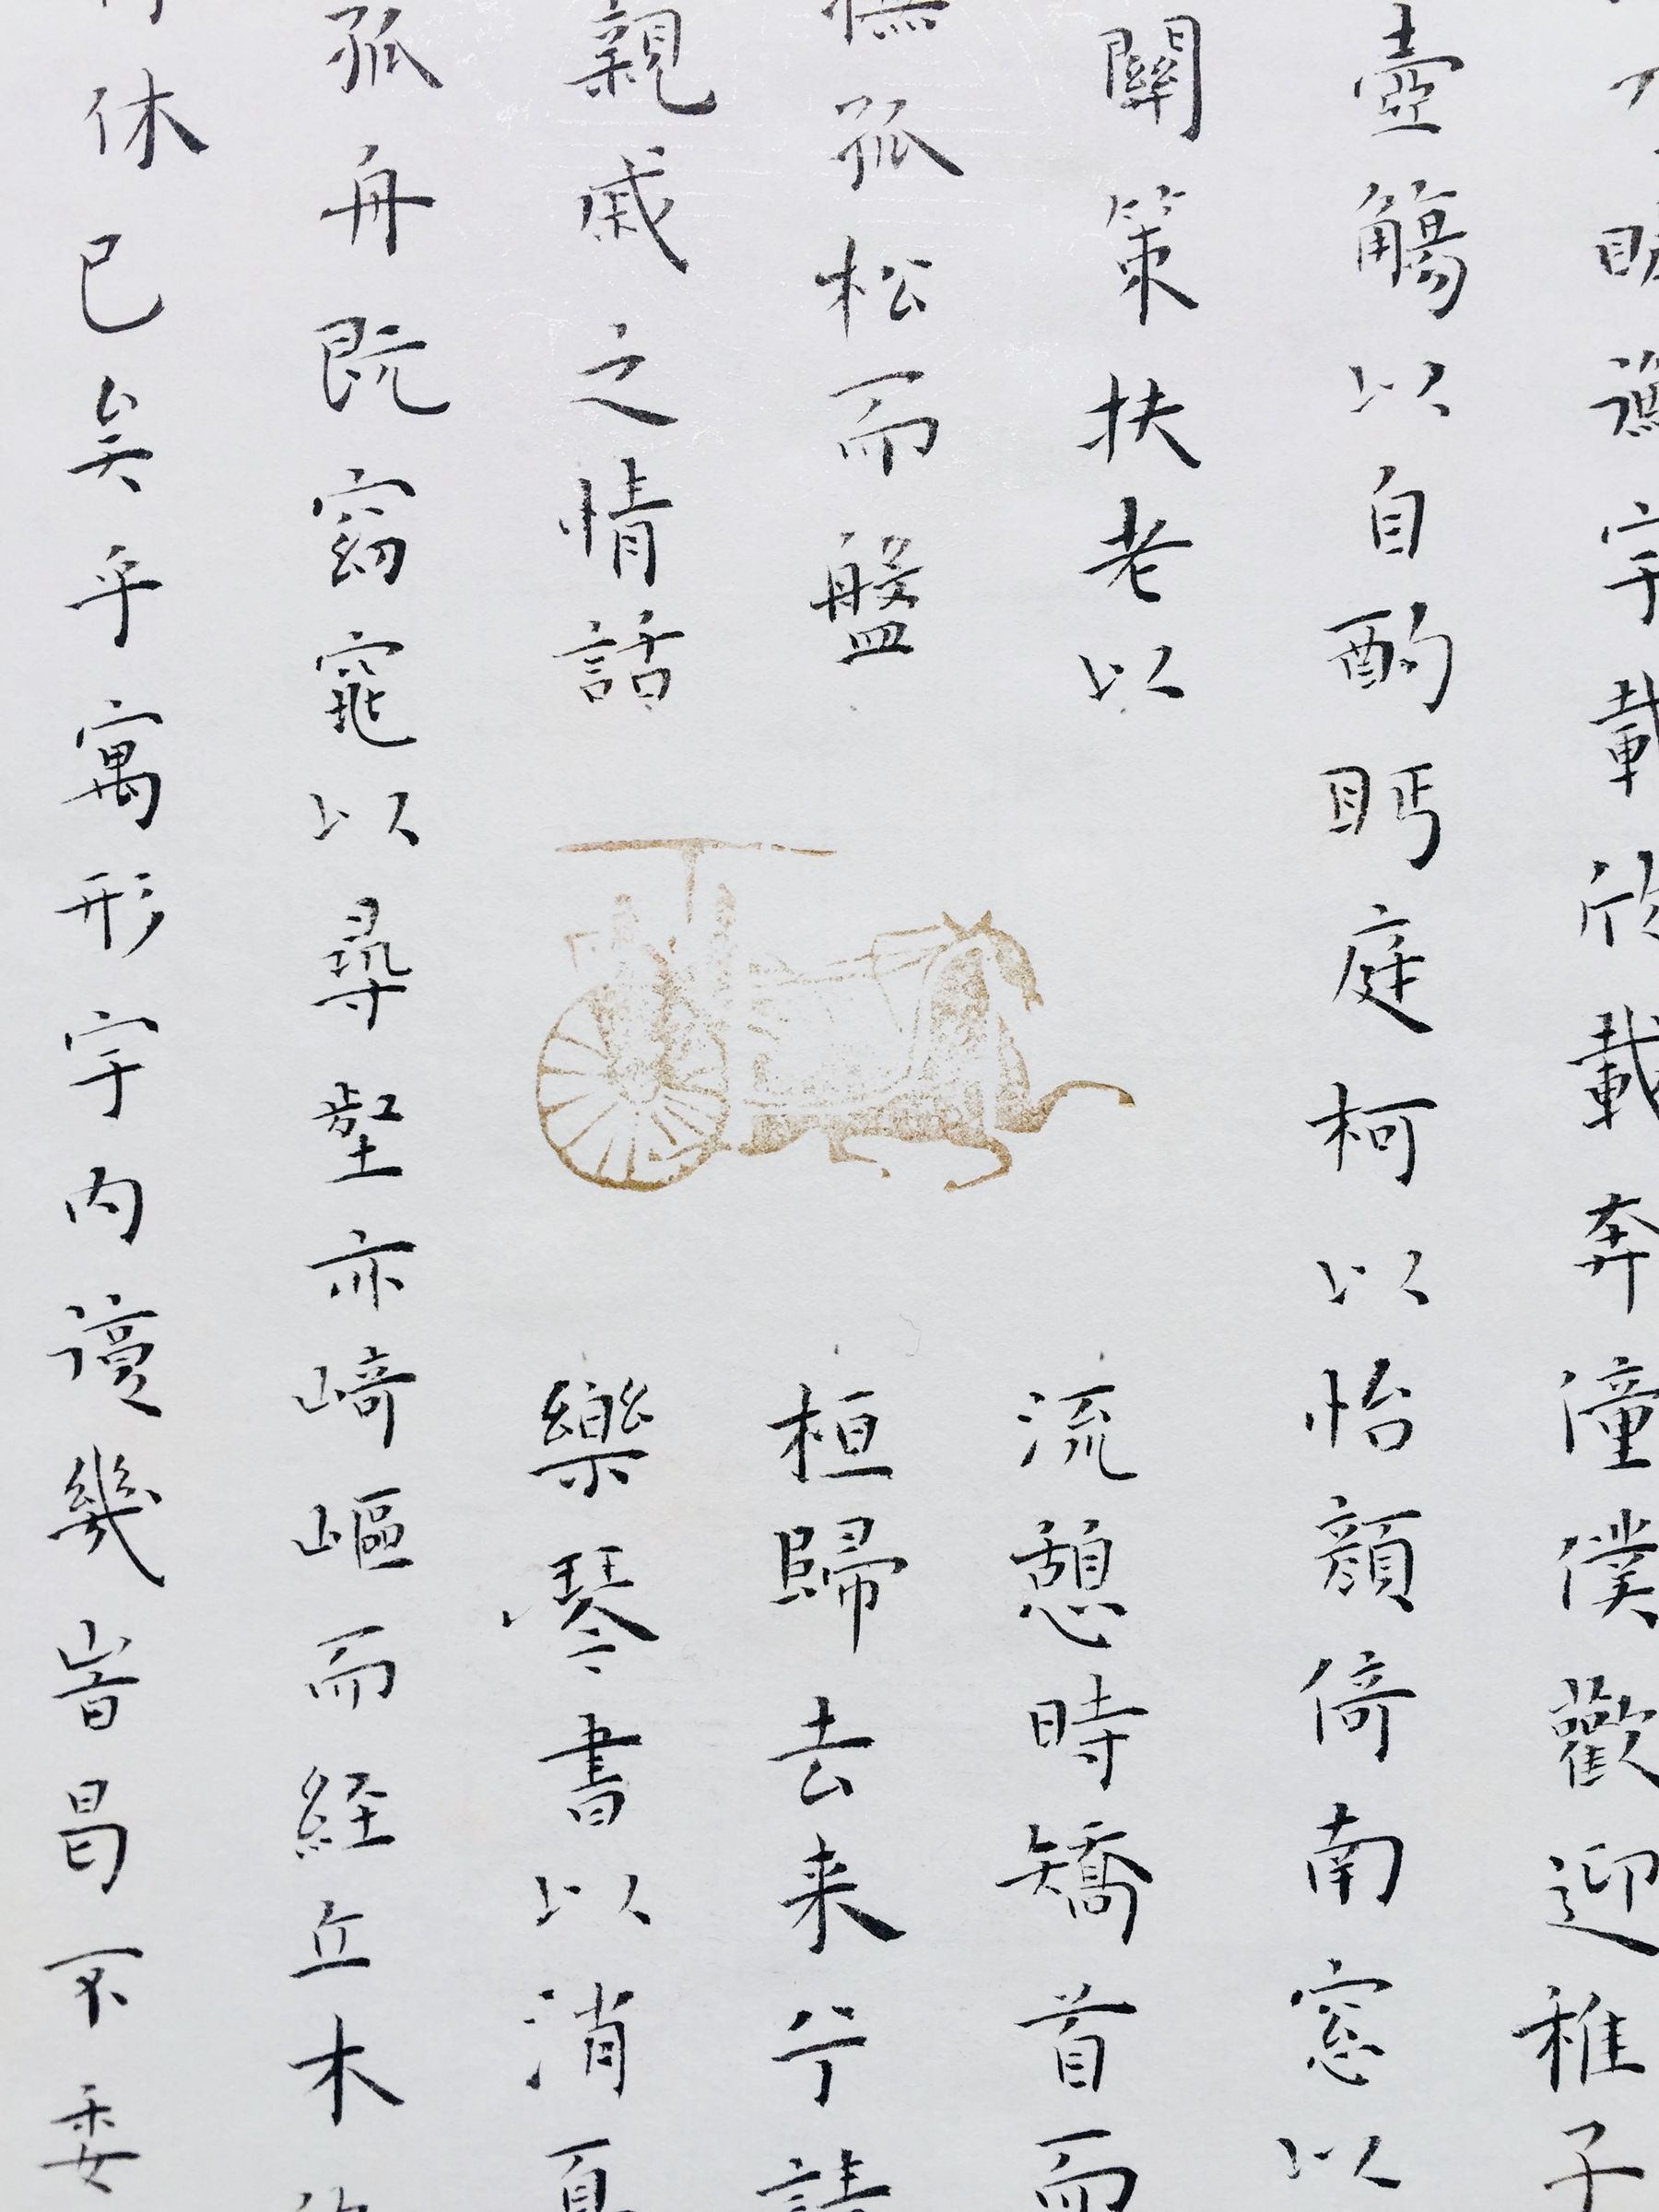 宇載欣載奔僮僕歡迎稚子
壺觴以自酌眄庭柯以怡顏倚南窓以
關策扶老以流憩時矯首而
孤松而盤桓歸去来兮請
親戚之情話樂琴書以消
孤舟既窈窕以尋壑亦崎嶇而経丘木
休已矣乎寓形宇内復幾時曷不委